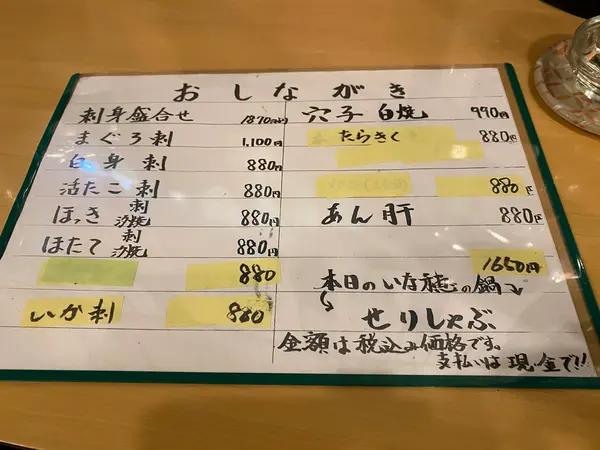 おしながき
刺身盛合せ 1870円
まぐろ刺 1,100円
白身刺 880円
活たこ刺 880円
ほっき 刺 汐焼 880円
ほたて 刺 汐焼 880円
880
いか刺 880
穴子白焼 990円
たらきく 880円
880円
あん肝 880円
1650円
本日のいな穂の鍋
せりしゃぶ
金額は税込み価格です。
支払いは現金で!!